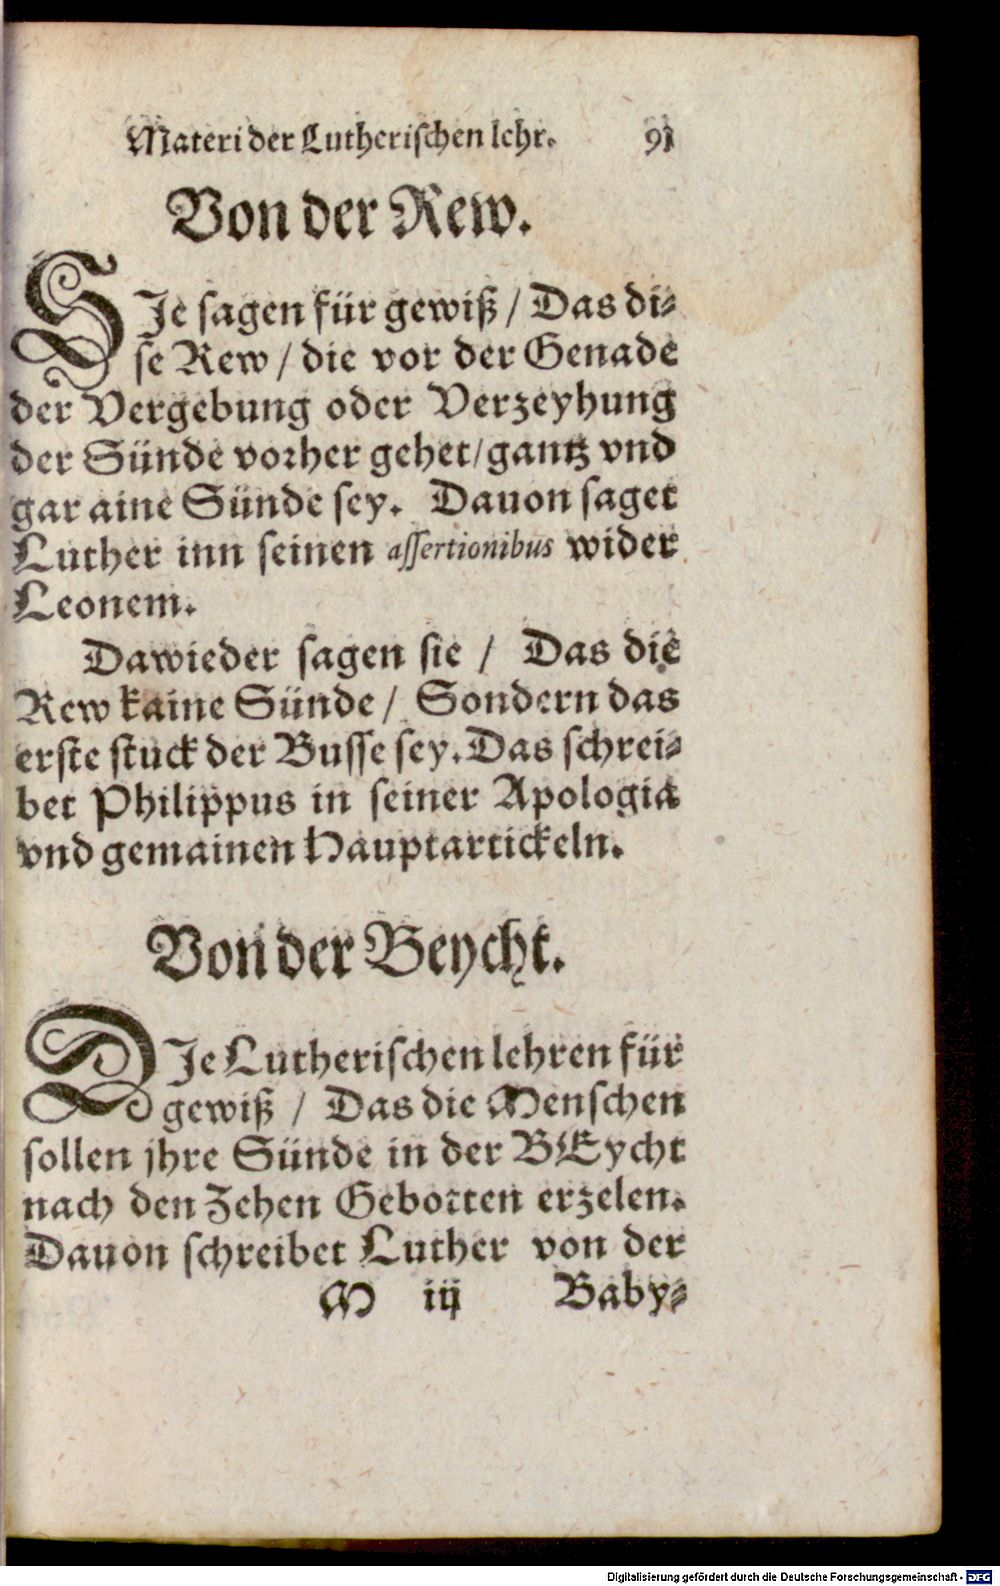 Materi der Lutherischen lehr. 91
Von der Rew.
SJe sagen für gewiß / Das di⸗
se Rew / die vor der Genade
der Vergebung oder Verzeyhung
der Sünde vorher gehet / gantz vnd
gar aine Sünde sey. Dauon saget
Luther inn seinen assertionibus wider
Leonem.
Dawieder sagen sie / Das die
Rew kaine Sünde / Sondern das
erste stuck der Busse sey. Das schrei⸗
bet Philippus in seiner Apologia
vnd gemainen Hauptartickeln.
Von der Beycht.
DJe Lutherischen lehren für
gewiß / Das die Menschen
sollen jhre Sünde in der BEycht
nach den Zehen Geboten erzelen.
Dauon schreibet Luther von der
M iij Baby⸗
Digitalisierung gefördert durch die Deutsche Forschungsgemeinschaft - DFG